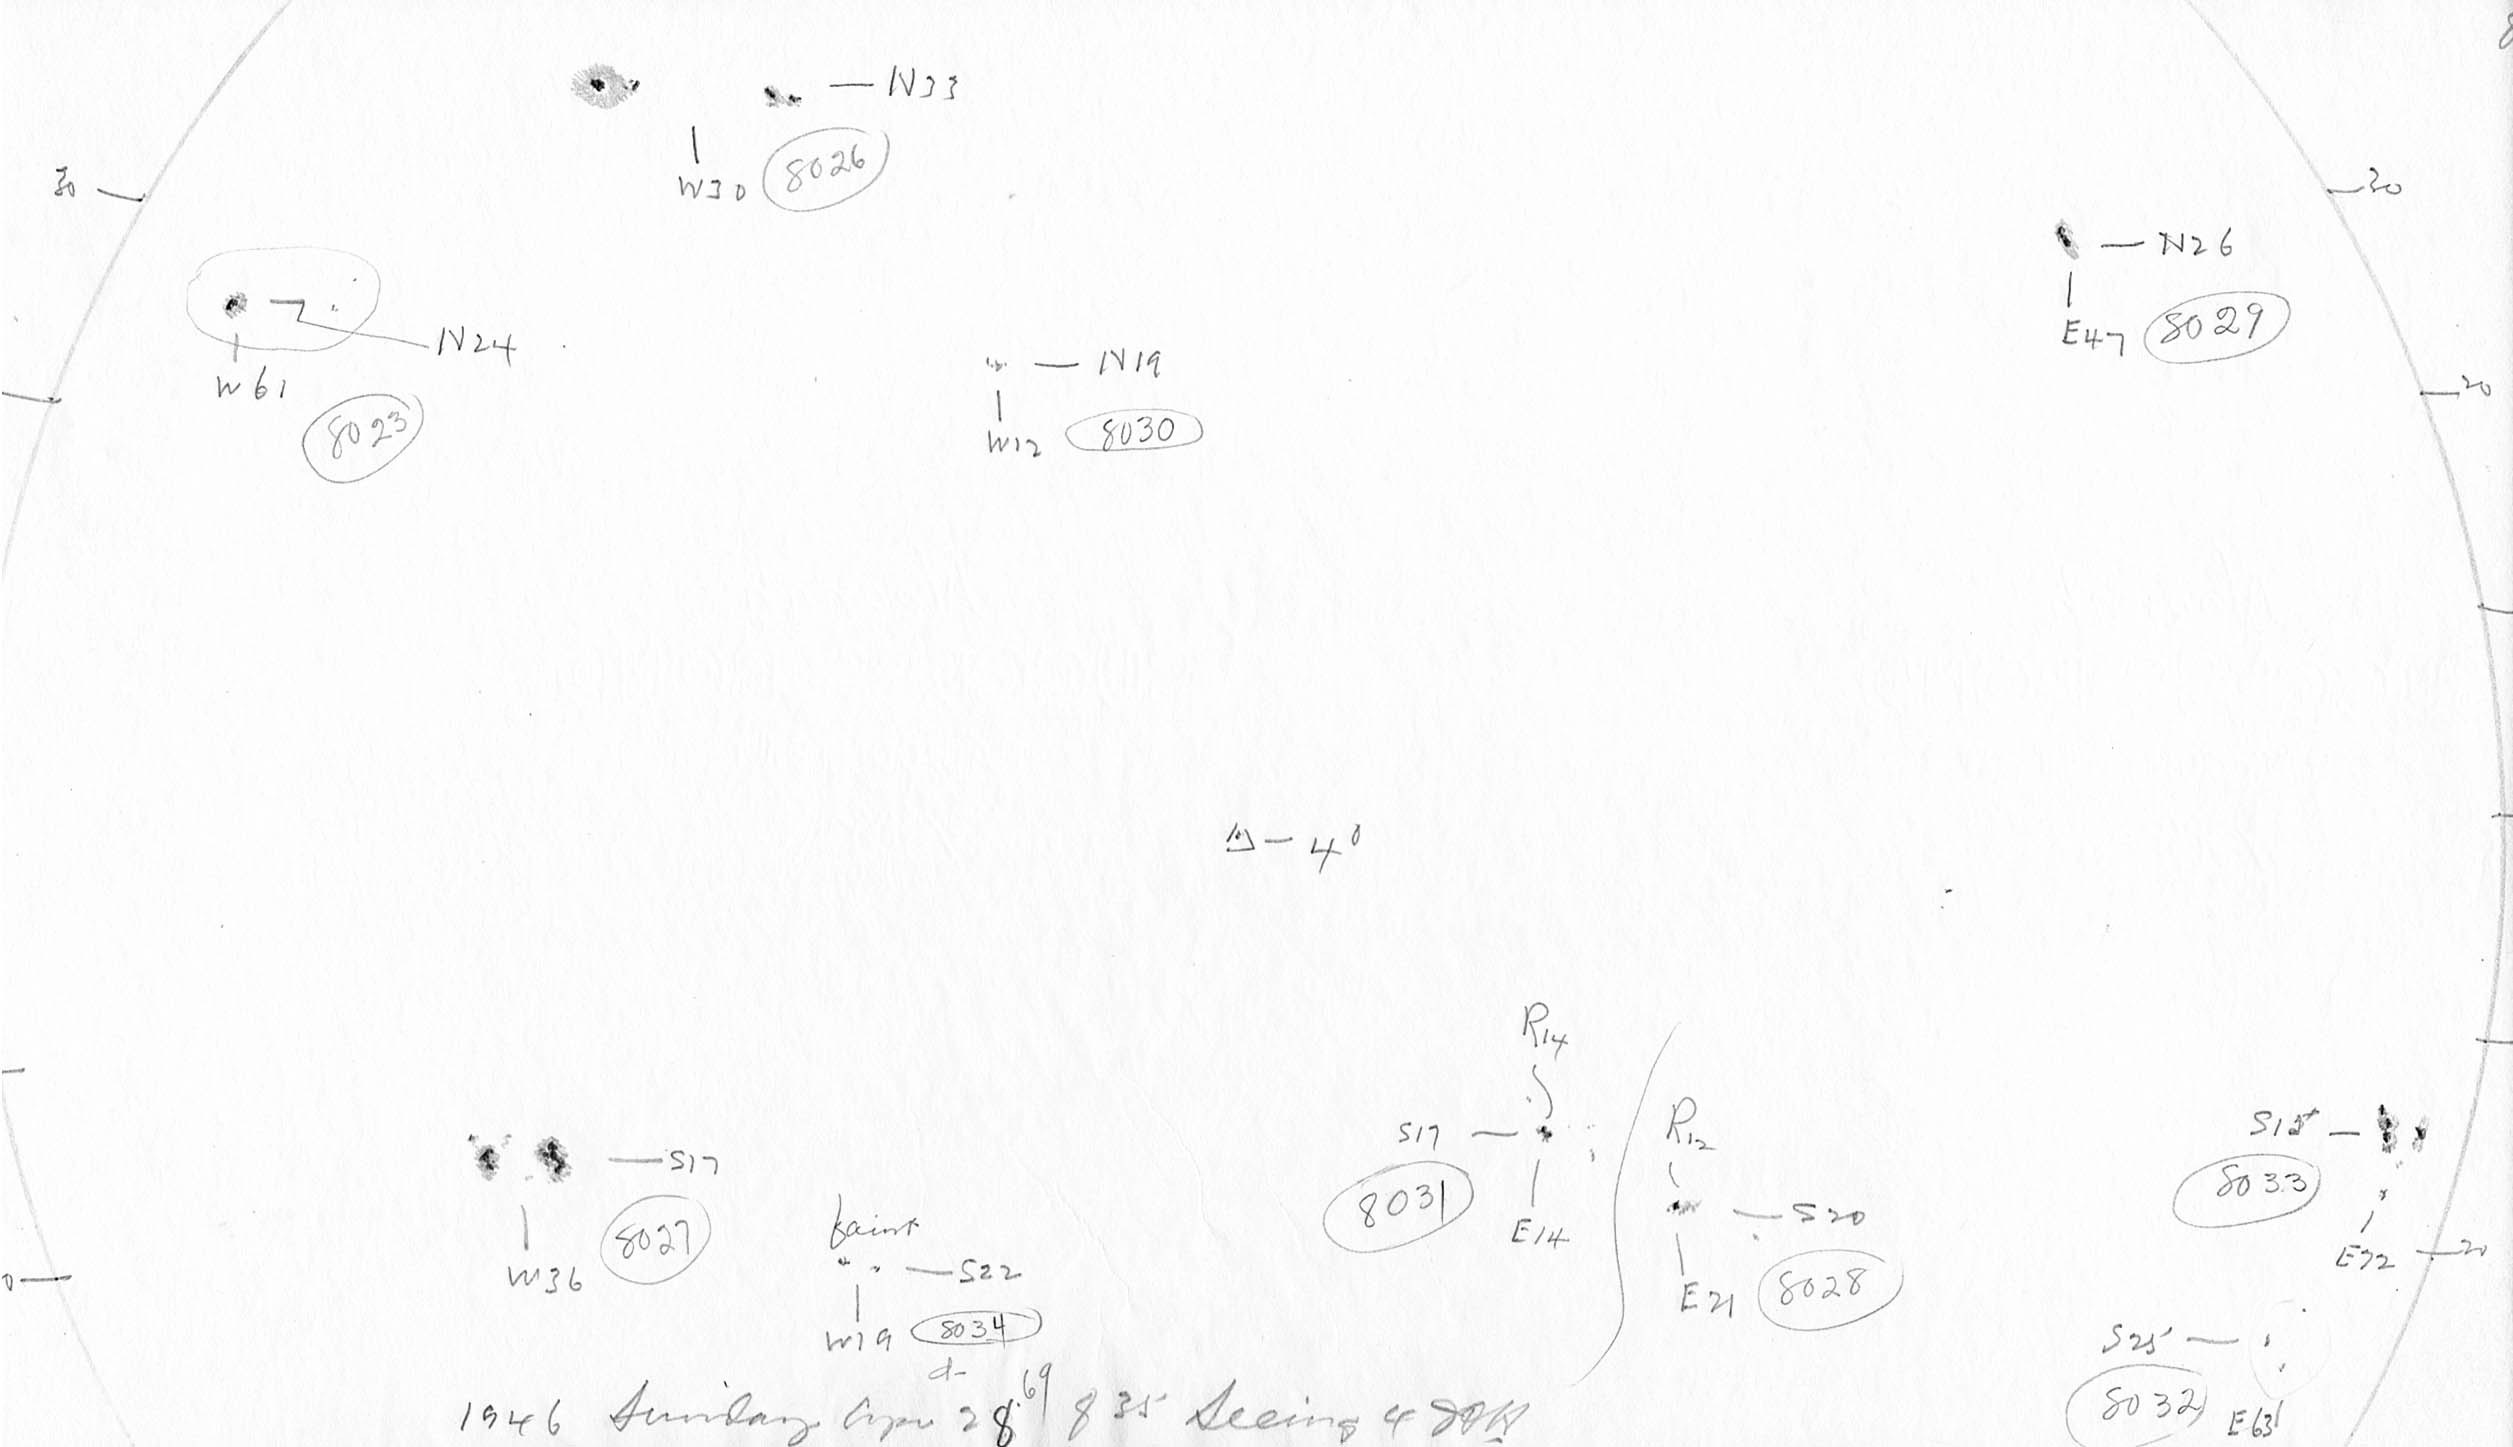 N33
W30 8026
30
30
N26
E47 8029
N24
W61
8023
N19
W12 8030
20
4°
R14
S17
8031
E14
R12
S20
E21 8028
S15
8033
E72
20
S17
W36 8027
faint
S22
W19 8034
0
S25
8032 E63
d-
1946 Sunday Apr 28.69 8 35 Seeing 4